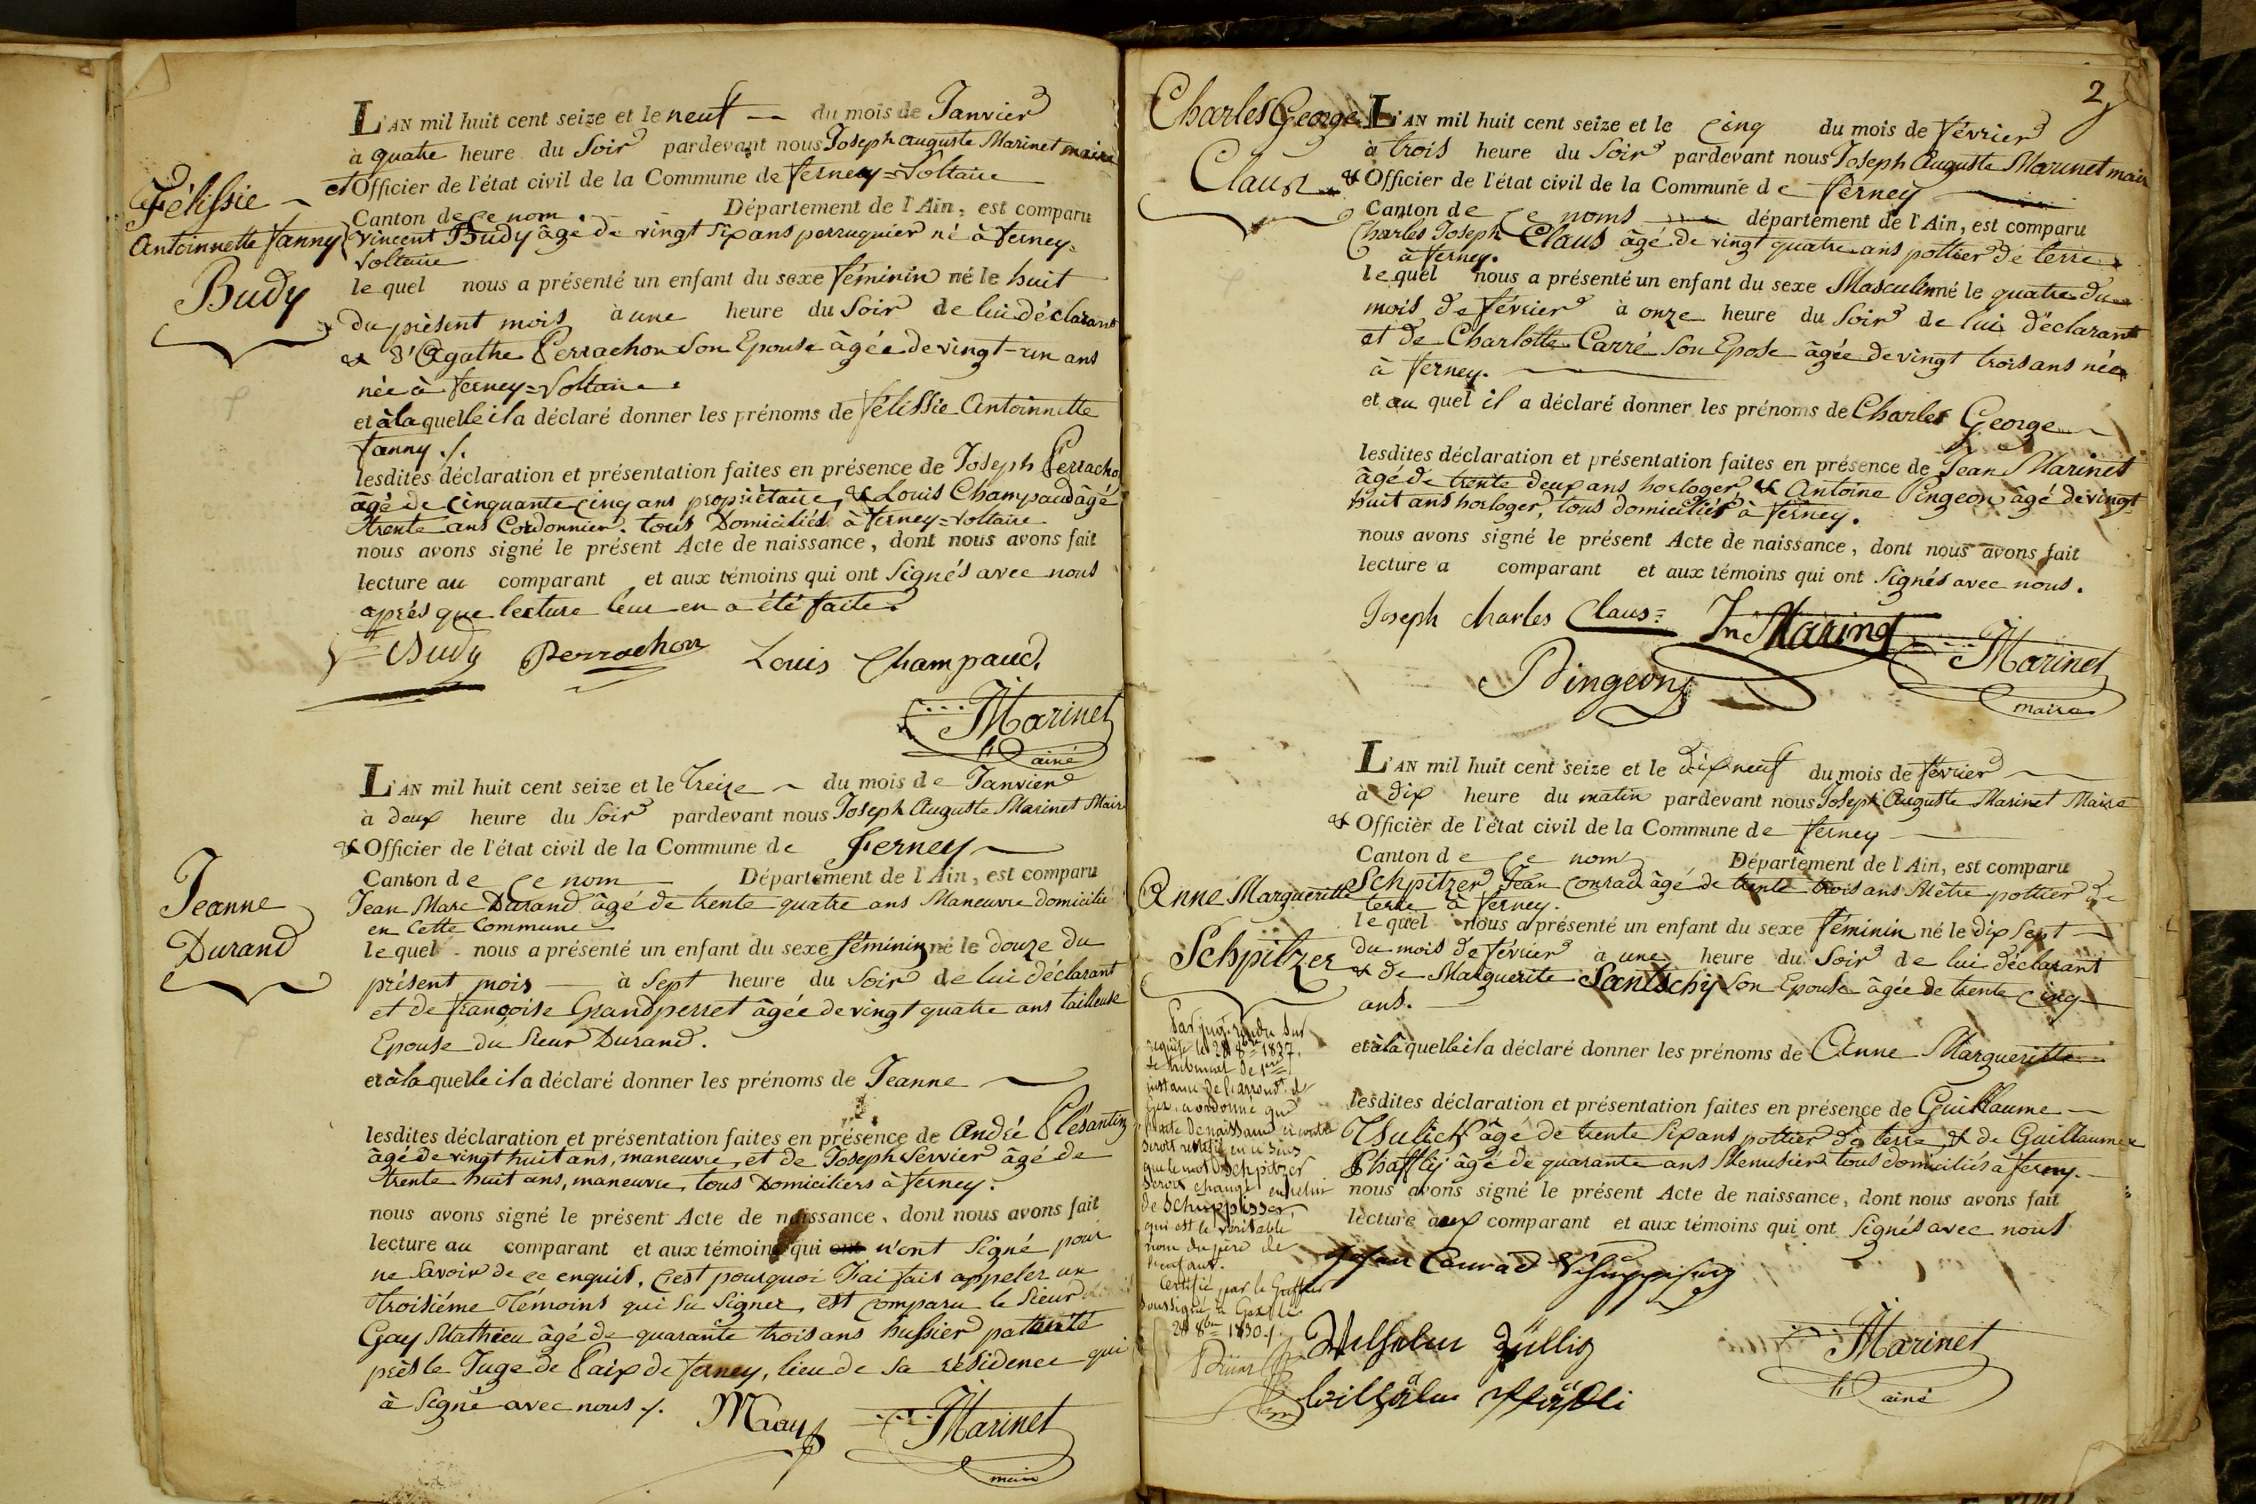 Félissie
Antoinnette fanny
Budy
L'AN mil huit cent seize et le neuf du mois de Janvier
à quatre heure du Soir pardevant nous Joseph auguste Marinet maire
et Officier de l'état civil de la Commune de ferney=Voltaire
Canton de ce nom. Département de l'Ain, est comparu
Vincent Budy âgé de vingt six ans perruquier né à ferney=
Voltaire
le quel nous a présenté un enfant du sexe féminin né le huit
du présent mois à une heure du Soir de lui déclarant
& d'Agathe Perrachon Son Epouse âgée de vingt-un ans
née à ferney=Voltaire.
et à la quelle il a déclaré donner les prénoms de félissie Antoinnette
fanny ./.
lesdites déclaration et présentation faites en présence de Joseph Perrachon
âgé de cinquante cinq ans propriètaire, & Louis Champaud âgé
trente ans Cordonnier. tous Domiciliés à ferney=Voltaire
nous avons signé le présent Acte de naissance, dont nous avons fait
lecture au comparant et aux témoins qui ont Signés avec nous
après que lecture leur en a été faite.
Budy Perrachon Louis Champaud.
Marinet
ainé
Jeanne
Durand
L'AN mil huit cent seize et le Treize du mois de Janvier
à deux heure du Soir pardevant nous Joseph Auguste Marinet Maire
& Officier de l'état civil de la Commune de Ferney
Canton de ce nom Département de l'Ain, est comparu
Jean Marc Durand âgé de trente quatre ans Maneuvre domicilié
en Cette Commune
le quel nous a présenté un enfant du sexe féminin né le douze du
présent mois à Sept heure du Soir de lui déclarant
et de françoise Grandperret âgée de vingt quatre ans tailleuse
Epouse du Sieur Durand.
et à la quelle il a déclaré donner les prénoms de Jeanne
lesdites déclaration et présentation faites en présence de André Plésantin
âgé de vingt huit ans, maneuvre, et de Joseph Servier âgé de
trente huit ans, maneuvre, tous Domiciliers à ferney.
nous avons signé le présent Acte de naissance, dont nous avons fait
lecture au comparant et aux témoins qui ont n'ont Signé pour
ne Savoir de ce enquis, c'est pourquoi J'ai fais appeler un
troisiéme Témoins qui Su Signer, est comparu le Sieur
Gay Mathieu âgé de quarante trois ans hussier patenté
près le Juge de Paix de ferney, lieu de Sa résidence qui
à Signé avec nous ./.
MGay Marinet
maire
2
Charles George
Claus
L'AN mil huit cent seize et le cinq du mois de février
à trois heure du Soir pardevant nous Joseph Auguste Marinet maire
& Officier de l'état civil de la Commune de ferney
Canton de ce noms département de l'Ain, est comparu
Charles Joseph Claus âgé de vingt quatre ans pottier de terre
à ferney.
le quel nous a présenté un enfant du sexe Masculin né le quatre du
mois de février à onze heure du Soir de lui déclarant
et de Charlotte Carré Son Epose âgée de vingt trois ans née
à ferney.
et au quel il a déclaré donner les prénoms de Charles George
lesdites déclaration et présentation faites en présence de Jean Marinet
âgé de trente deux ans horloger & Antoine Pingeon âgé de vingt
huit ans horloger, tous domiciliés à ferney.
nous avons signé le présent Acte de naissance, dont nous avons fait
lecture a comparant et aux témoins qui ont Signés avec nous.
Joseph charles Claus= Jn Marinet
Marinet
Pingeon
maire
Anne Margueritte
Schpitzer
L'AN mil huit cent seize et le dix neuf du mois de février
à dix heure du matin pardevant nous Joseph Auguste Marinet Maire
& Officier de l'état civil de la Commune de ferney
Canton de ce nom Département de l'Ain, est comparu
Schpitzer Jean Conrad âgé de trente trois ans Mètre pottier de
terre à ferney.
le quel nous a présenté un enfant du sexe féminin né le dix Sept
du mois de février à une heure du Soir de lui déclarant
& de Marguerite Santschy Son Epouse âgée de trente cinq
ans.
et à la quelle il a déclaré donner les prénoms de Anne Margueritte
lesdites déclaration et présentation faites en présence de Guillaume
âgé de trente Six ans pottier de terre & de Guillaume
Phaffly âgé de quarante ans Menusier tous domiciliés à ferney.
nous avons signé le présent Acte de naissance, dont nous avons fait
lecture aux comparant et aux témoins qui ont Signés avec nous
Par jugt rendu Sur
requête le 28 8bre
le tribunal de 1ere
instance de l'arrondt de
Gex, a ordonné que
l'acte de naissance ci contre
Seroit rectifié en ce Sens
que le mot Schpitzer
Seroit changé en celui
de Schuppisser
qui est le véritable
nom du père de
l'enfant.
Certifié par le Greffier
Soussigné à Gex le
28 8bre 1830 ./.
Conrad Schuppisser
Wilhelm Züllig
Wilhelm
Marinet
ainé